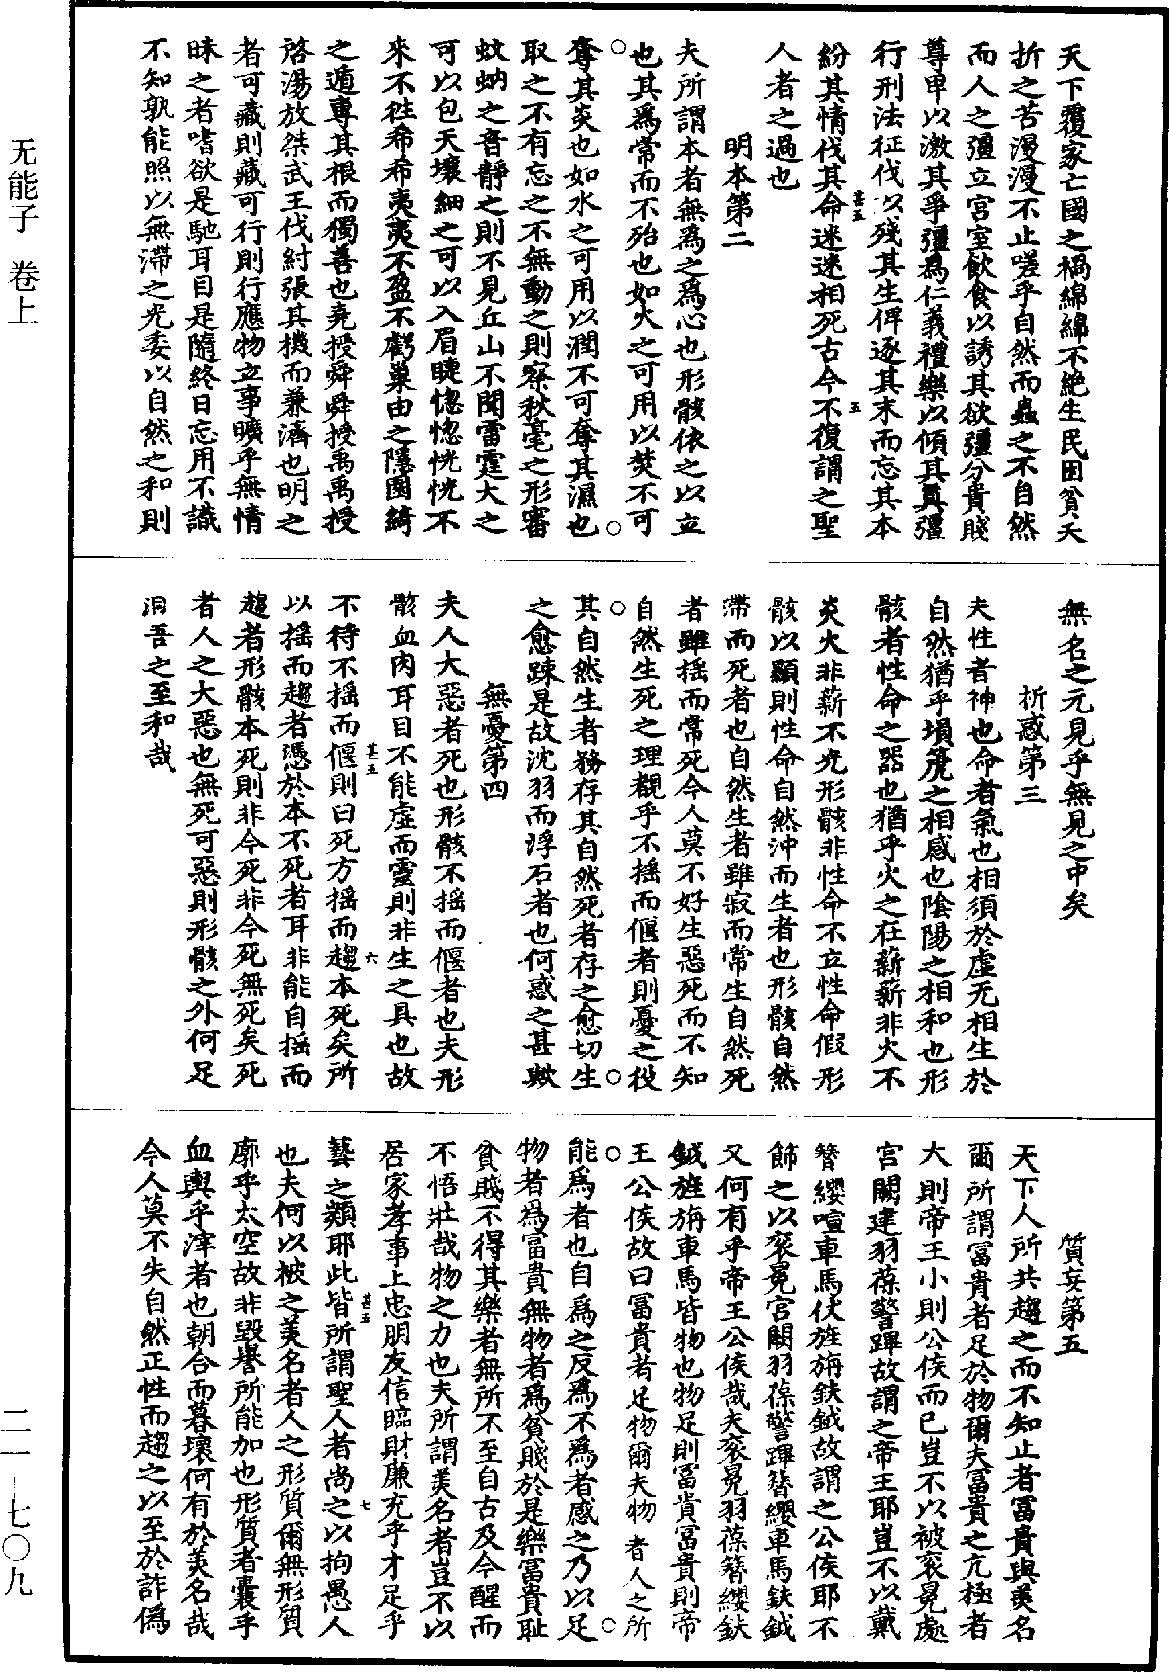 天下覆家亡國之禍綿綿不絶生民困貧夭
折之苦漫漫不止嗟乎自然而蟲之不自然
而人之彊立宮室飲食以誘其欲彊分貴賤
尊卑以激其爭彊爲仁義禮樂以傾其真彊
行刑法征伐以殘其生俾逐其末而忘其本
紛其情伐其命迷迷相死古今不復謂之聖
人者之過也
明本第二
夫所謂本者無爲之爲心也形骸依之以立
也其爲常而不殆也如火之可用以焚不可
奪其炎也如水之可用以潤不可奪其濕也
取之不有忘之不無動之則察秋毫之形審
蚊蚋之音靜之則不見丘山不聞雷霆大之
可以包天壤細之可以入眉睫惚惚恍恍不
來不徃希希夷夷不盈不虧巢由之隱園綺
之遁專其根而獨善也堯授舜舜授禹禹授
啓湯放桀武王伐紂張其機而兼濟也明之
者可藏則藏可行則行應物立事曠乎無情
昧之者嗜欲是馳耳目是隨終日忘用不識
不知孰能照以無滯之光委以自然之和則
無名之元見乎無見之中矣
析惑第三
夫性者神也命者氣也相須於虛无相生於
自然猶乎塤篪之相感也陰陽之相和也形
骸者性命之器也猶乎火之在薪薪非火不
炎火非薪不光形骸非性命不立性命假形
骸以顯則性命自然沖而生者也形骸自然
滯而死者也自然生者雖寂而常生自然死
者雖揺而常死今人莫不好生惡死而不知
自然生死之理覩乎不揺而偃者則憂之役
其自然生者務存其自然死者存之愈切生
之愈踈是故沈羽而浮石者也何惑之甚歟
無憂第四
夫人大惡者死也形骸不揺而偃者也夫形
骸血肉耳目不能虛而靈則非生之具也故
不待不揺而偃則曰死方揺而趨本死矣所
以揺而趨者憑於本不死者耳非能自揺而
趨者形骸本死則非今死非今死無死矣死
者人之大惡也無死可惡則形骸之外何足
洞吾之至和哉
質妄第五
天下人所共趨之而不知止者冨貴與美名
爾所謂冨貴者足於物爾夫冨貴之亢極者
大則帝王小則公侯而已豈不以被衮冕處
宮闕建羽葆警蹕故謂之帝王耶豈不以戴
簪纓喧車馬仗旌旃鈇鉞故謂之公侯耶不
飾之以衮冕宮闕羽葆警蹕簪纓車馬鈇鉞
又何有乎帝王公侯哉夫衮冕羽葆簪纓鈇
鉞旌旃車馬皆物也物足則冨貴冨貴則帝
王公侯故曰冨貴者足物爾夫物者人之所
能爲者也自爲之反爲不爲者感之乃以足
物者爲冨貴無物者爲貧賤於是樂冨貴恥
貧賤不得其樂者無所不至自古及今醒而
不悟壯哉物之力也夫所謂美名者豈不以
居家孝事上忠朋友信臨財廉充乎才足乎
藝之類耶此皆所謂聖人者尚之以拘愚人
也夫何以被之美名者人之形質爾無形質
廓乎太空故非毀譽所能加也形質者囊乎
血輿乎滓者也朝合而暮壞何有於美名哉
今人莫不失自然正性而趨之以至於詐僞
甚五 五
甚五 六
甚五 七
无能子 卷上
二一—七〇九